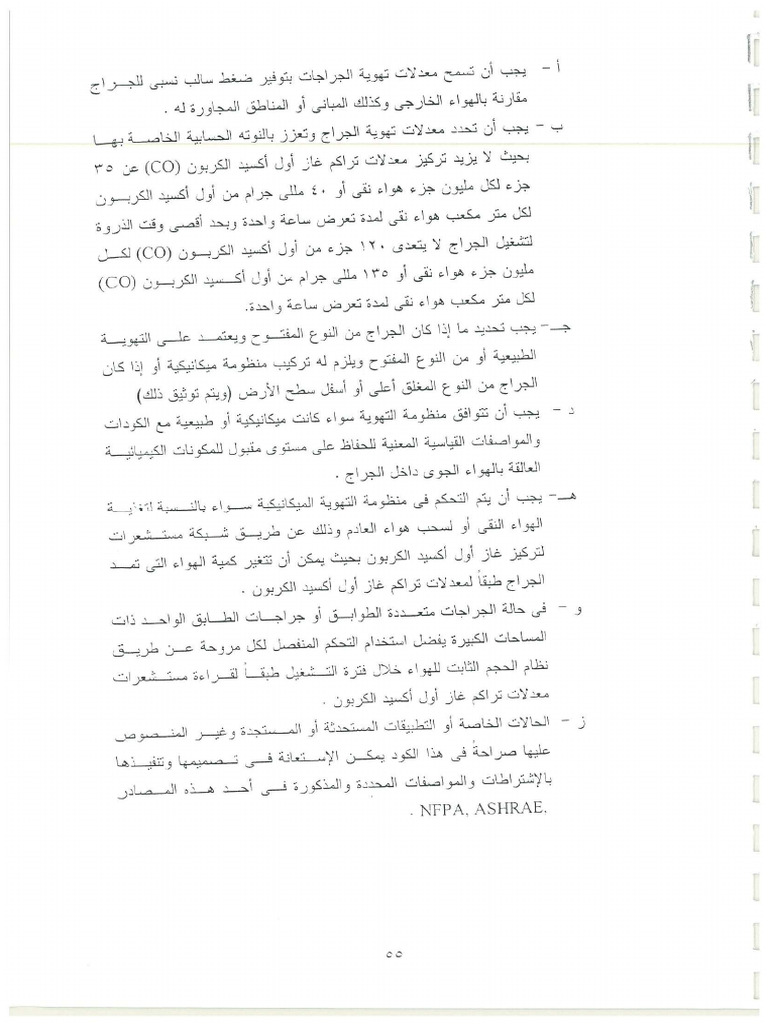 أ - يجب أن تسمح معدلات تهوية الجراجات بتوفير ضغط سالب نسبى للجراج
مقارنة بالهواء الخارجى وكذلك المبانى أو المناطق المجاورة له .
ب - يجب أن تحدد معدلات تهوية الجراج وتعزز بالنوته الحسابية الخاصة بها
بحيث لا يزيد تركيز معدلات تراكم غاز أول أكسيد الكربون (CO) عن ٣٥
جزء لكل مليون جزء هواء نقى أو ٤٠ مللى جرام من أول أكسيد الكربون
لكل متر مكعب هواء نقى لمدة تعرض ساعة واحدة وبحد أقصى وقت الذروة
لتشغيل الجراج لا يتعدى ١٢٠ جزء من أول أكسيد الكربون (CO) لكل
مليون جزء هواء نقى أو ١٣٥ مللى جرام من أول أكسيد الكربون (CO)
لكل متر مكعب هواء نقى لمدة تعرض ساعة واحدة.
جـ - يجب تحديد ما إذا كان الجراج من النوع المفتوح ويعتمد على التهوية
الطبيعية أو من النوع المفتوح ويلزم له تركيب منظومة ميكانيكية أو إذا كان
الجراج من النوع المغلق أعلى أو أسفل سطح الأرض (ويتم توثيق ذلك)
د - يجب أن تتوافق منظومة التهوية سواء كانت ميكانيكية أو طبيعية مع الكودات
والمواصفات القياسية المعنية للحفاظ على مستوى مقبول للمكونات الكيميائية
العالقة بالهواء الجوى داخل الجراج .
هـ - يجب أن يتم التحكم فى منظومة التهوية الميكانيكية سواء بالنسبة لتغذية
الهواء النقى أو لسحب هواء العادم وذلك عن طريق شبكة مستشعرات
لتركيز غاز أول أكسيد الكربون بحيث يمكن أن تتغير كمية الهواء التى تمد
الجراج طبقاً لمعدلات تراكم غاز أول أكسيد الكربون .
و - فى حالة الجراجات متعددة الطوابق أو جراجات الطابق الواحد ذات
المساحات الكبيرة يفضل استخدام التحكم المنفصل لكل مروحة عن طريق
نظام الحجم الثابت للهواء خلال فترة التشغيل طبقاً لقراءة مستشعرات
معدلات تراكم غاز أول أكسيد الكربون .
ز - الحالات الخاصة أو التطبيقات المستحدثة أو المستجدة وغير المنصوص
عليها صراحةً فى هذا الكود يمكن الإستعانة فى تصميمها وتنفيذها
بالإشتراطات والمواصفات المحددة والمذكورة فى أحد هذه المصادر
NFPA, ASHRAE, .
٥٥